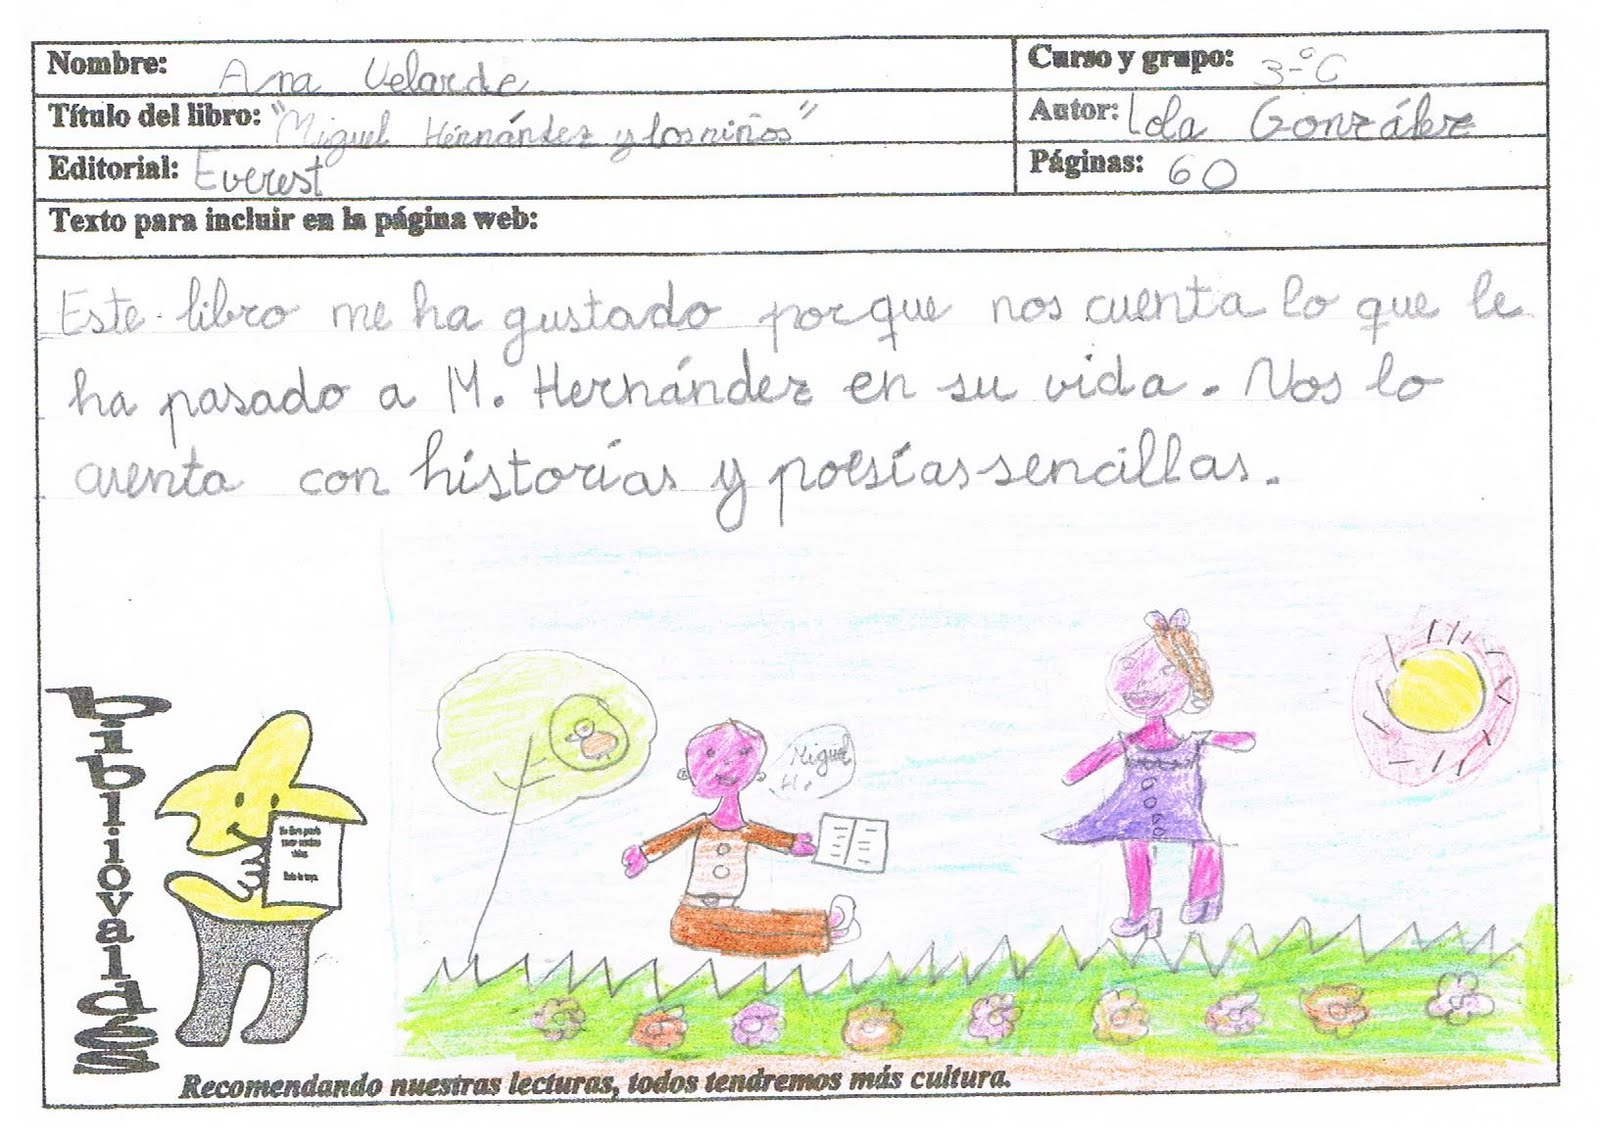 Nombre: Ana Velarde
Curso y grupo: 3-ºC
Título del libro: "Miguel Hernández y los niños"
Autor: Lola González
Editorial: Everest
Páginas: 60
Texto para incluir en la página web:
Este libro me ha gustado porque nos cuenta lo que le
ha pasado a M. Hernández en su vida. Nos lo
cuenta con historias y poesías sencillas.
Miguel
H.
bibliovaldés
Recomendando nuestras lecturas, todos tendremos más cultura.